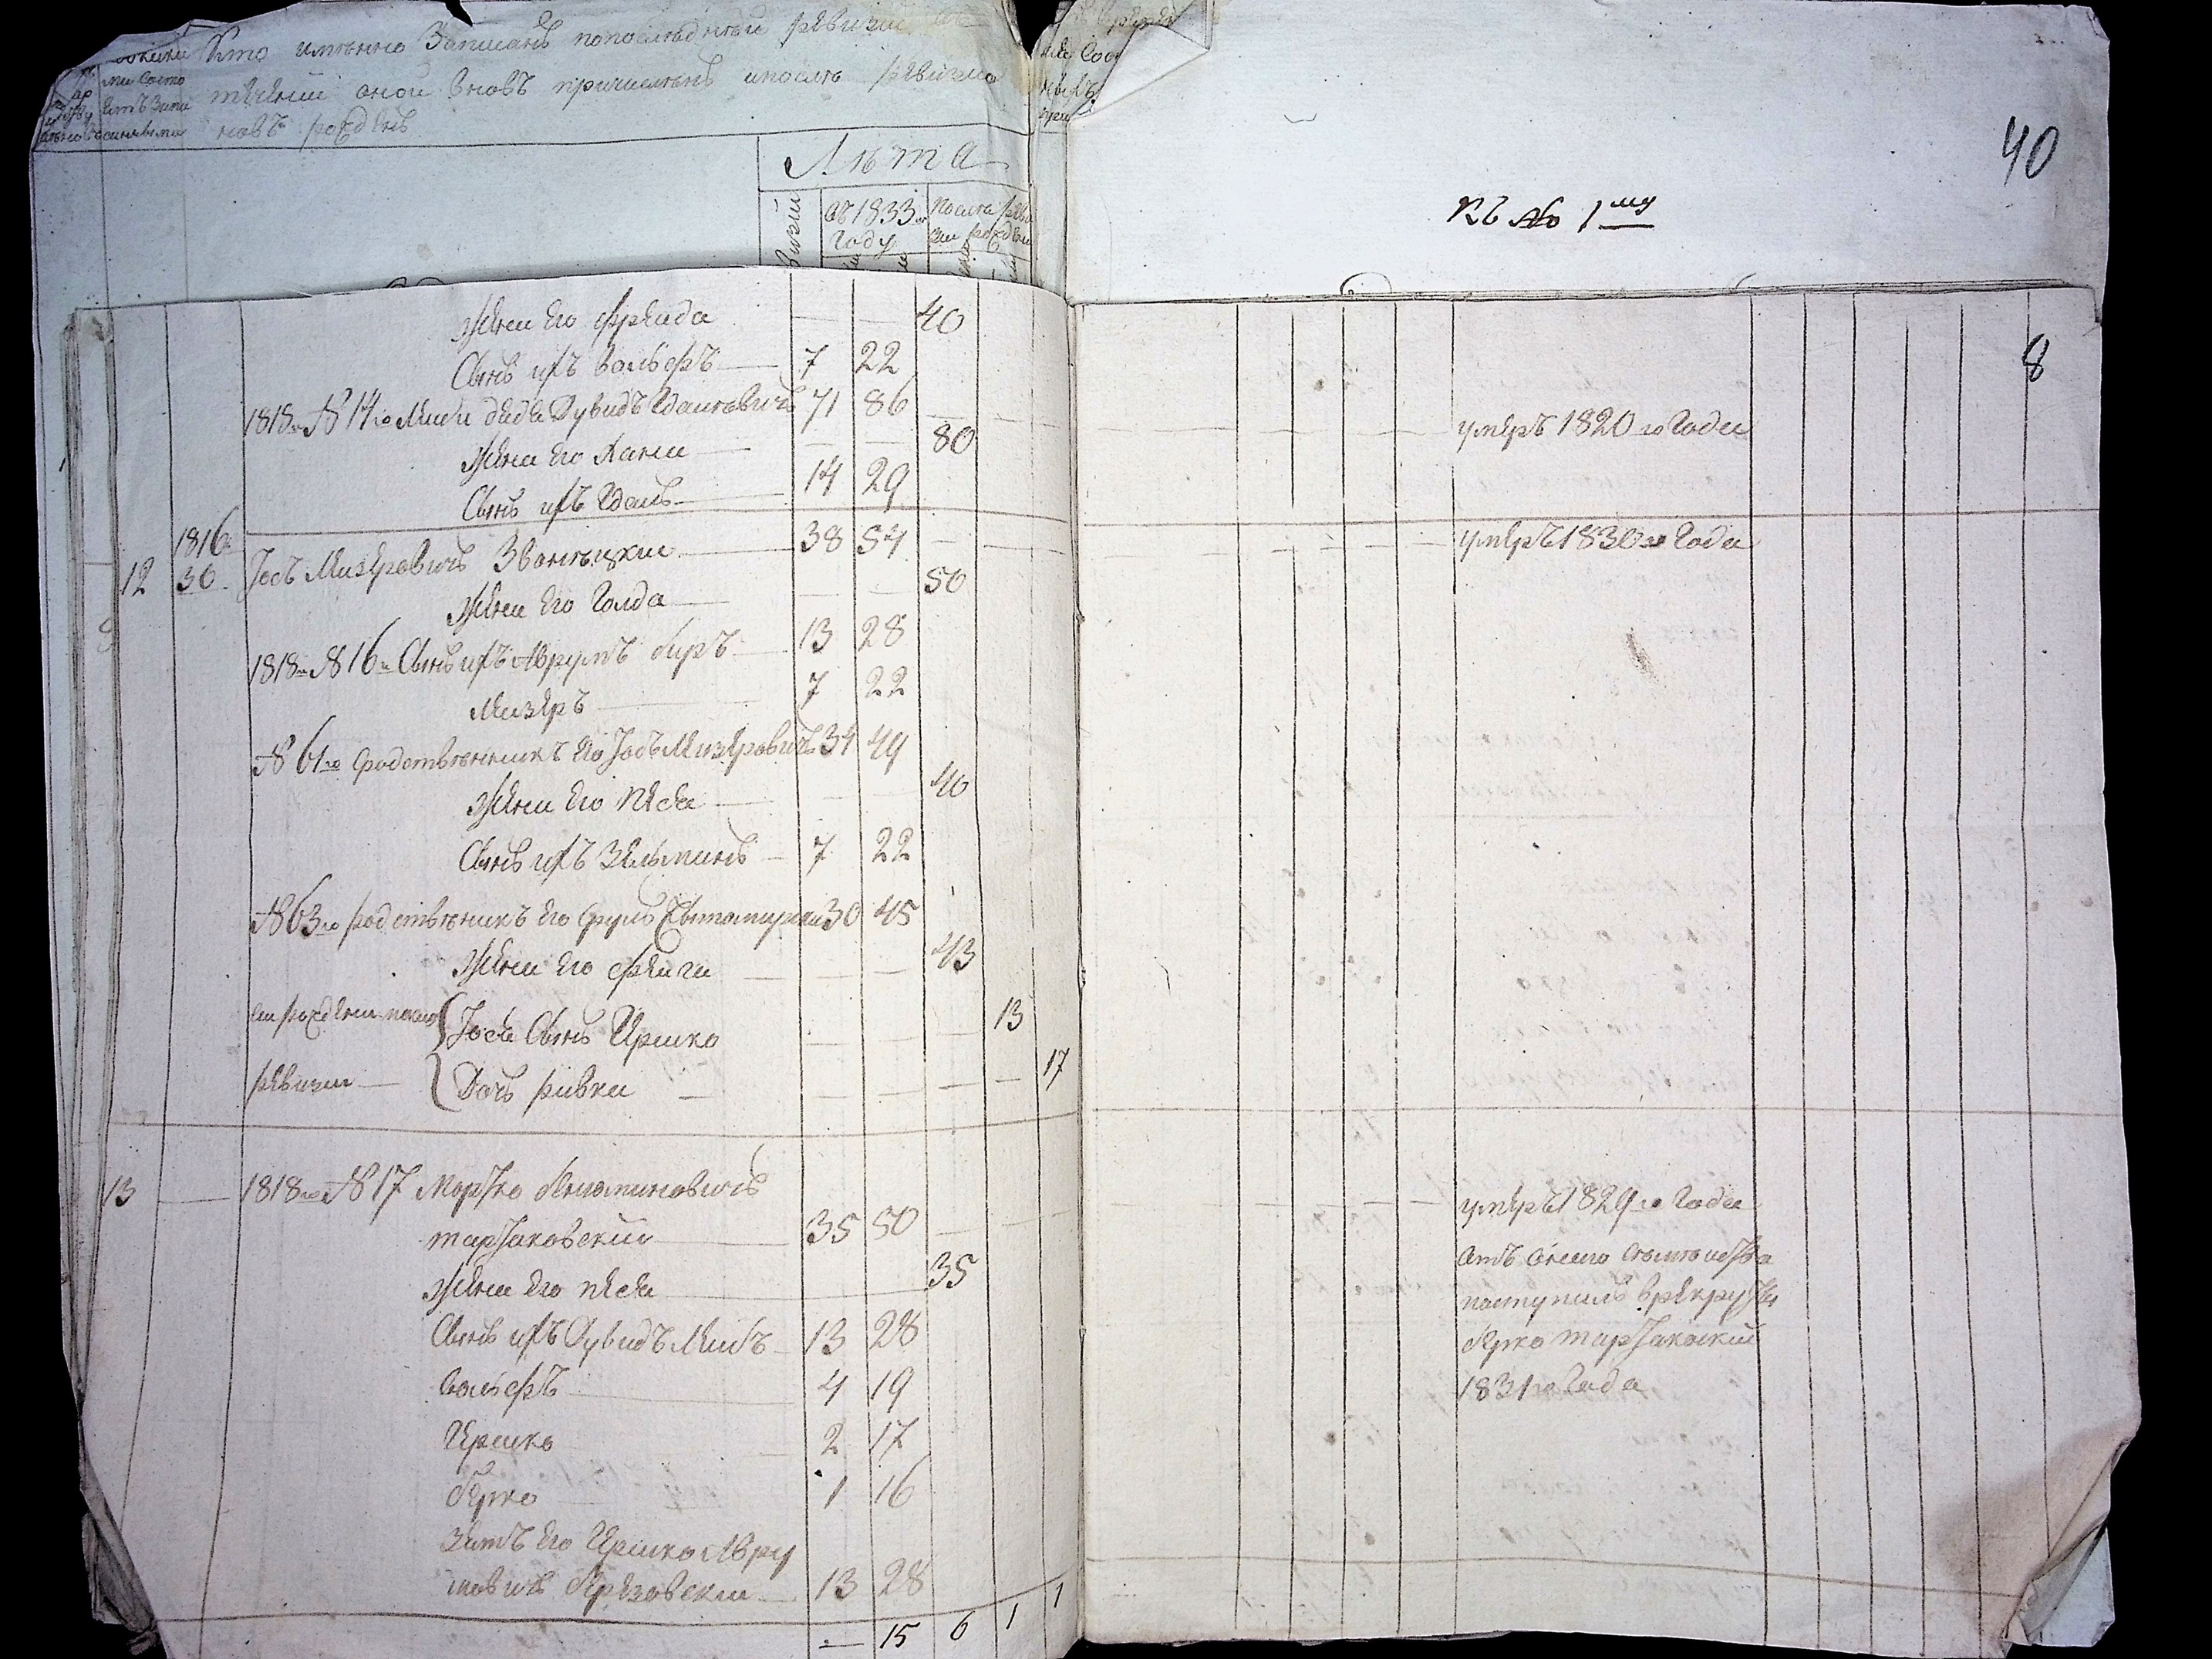 Кто имянно Записанъ попоследней ревизии
течении оной вновъ причисленъ ипосле ревизии
новъ рожденъ
Лѣта
въ 1833м Году
После реви зии рожден
40
Къ № 1му
8
Жена Его Фрейда 40
Сынъ ихъ Вольфъ 7 22
1818го № 14го Лейби дядя Дувидъ Иданковичъ 71 86 умеръ 1820го Года
Жена Его Хана 80
Сынъ ихъ Идаль 14 29
12 1816 30 Иосъ Мизеровичъ Звонецкий 38 54 умеръ 1830го Года
Жена Его Голда 50
1818го № 16го Сынъ ихъ Аврумъ беръ 13 28
Мизеръ 7 22
№ 61го Сродственникъ Его Иосъ Мизеровичъ 34 49
Жена Его Песя 40
Сынъ ихъ Зельманъ 7 22
№ 63го родственикъ Его Сруль Житомирски 30 45
Жена Его Фейга 43
рождени после { Иося Сынъ Ершко 13
ревизии { Дочь ривка 17
13 1818го № 17 Мошко Беньяминовичъ умеръ 1829го Года
таращаковский 35 50
Жена Его песя 35
Отъ Сего Семейства
поступилъ врекруты
Берко таращаковский
1831го Года
Сынъ ихъ Дувидъ Лейбъ 13 28
Вольфъ 4 19
Ершко 2 17
Берко 1 16
зять Его Ершко Авру
мовичъ Березовски 13 28
15 6 1 1